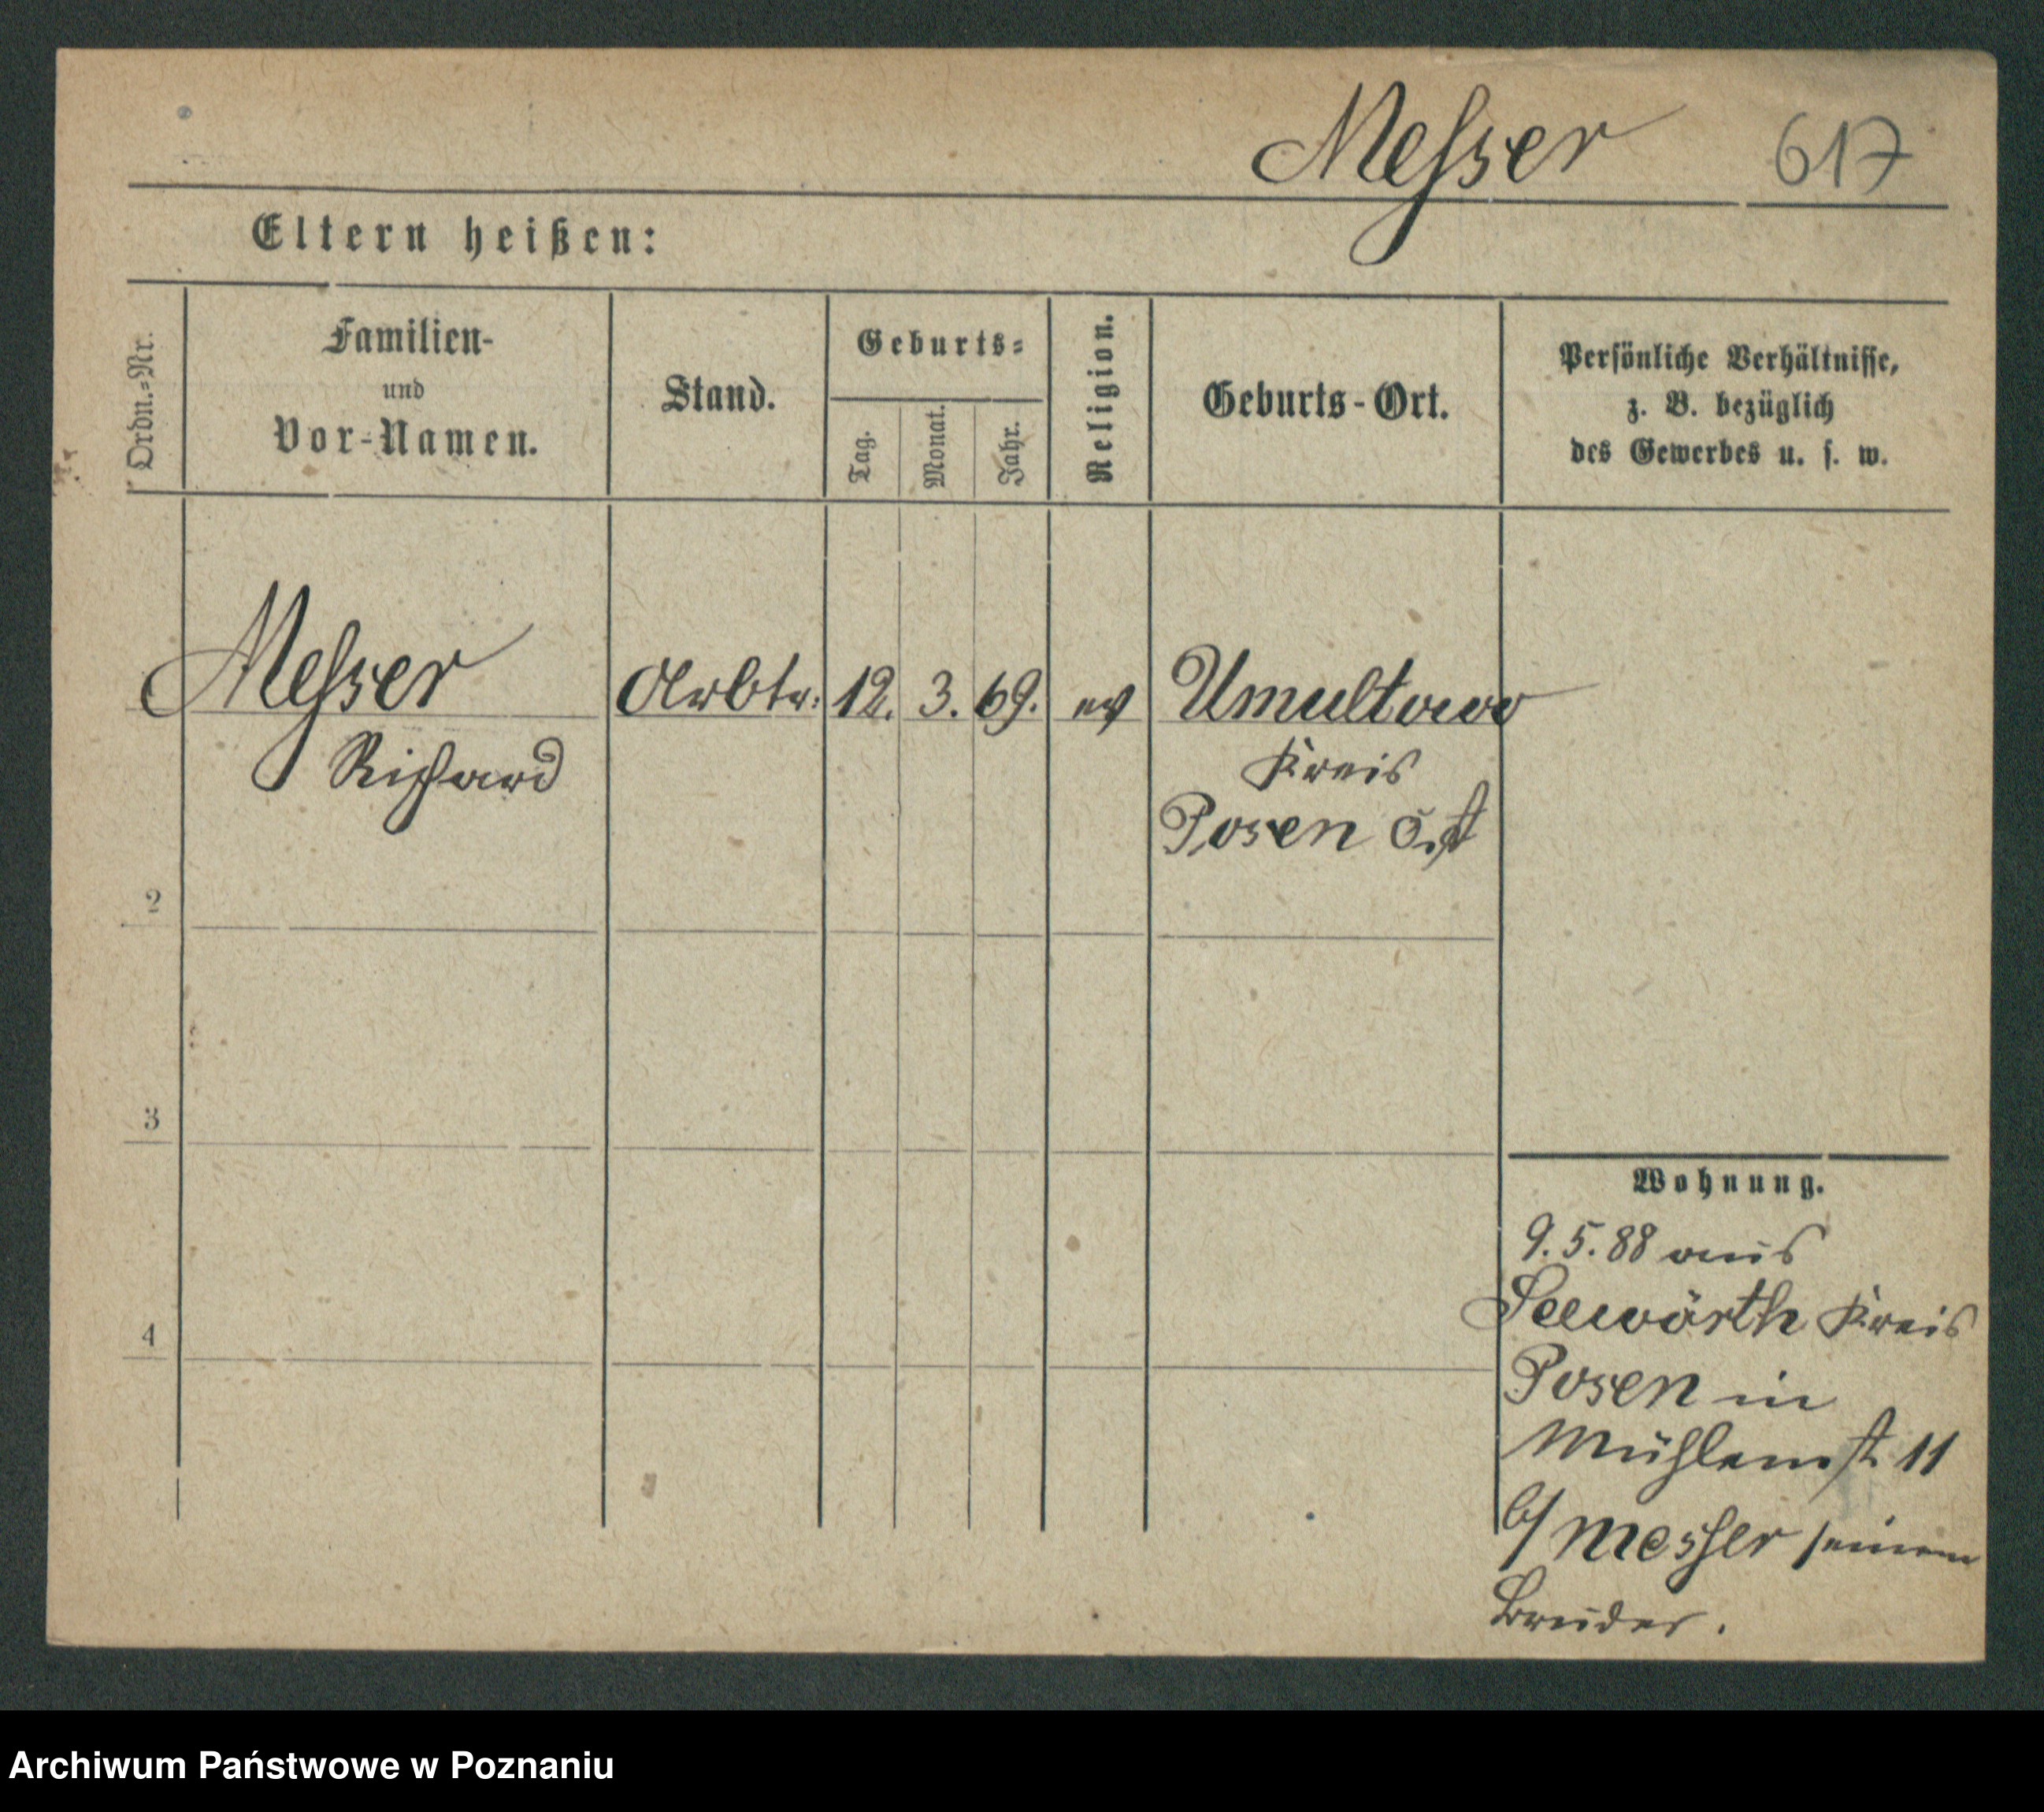 Messer 617
Eltern heißen:
Ordn.-Nr.
Familien-
und
Vor-Namen.
Stand.
Geburts-
Tag.
Monat.
Jahr.
Religion.
Geburts-Ort.
Persönliche Verhältnisse,
z. B. bezüglich
des Gewerbes u. s. w.
Messer Arbtr. 12. 3. 69. ev Umultowo
Richard Kreis
Posen Ost
2
3
4
Wohnung.
9. 5. 88 aus
Seewörth Kreis
Posen in
Mühlenst 11
b/ Messer seinem
Bruder.
Archiwum Państwowe w Poznaniu